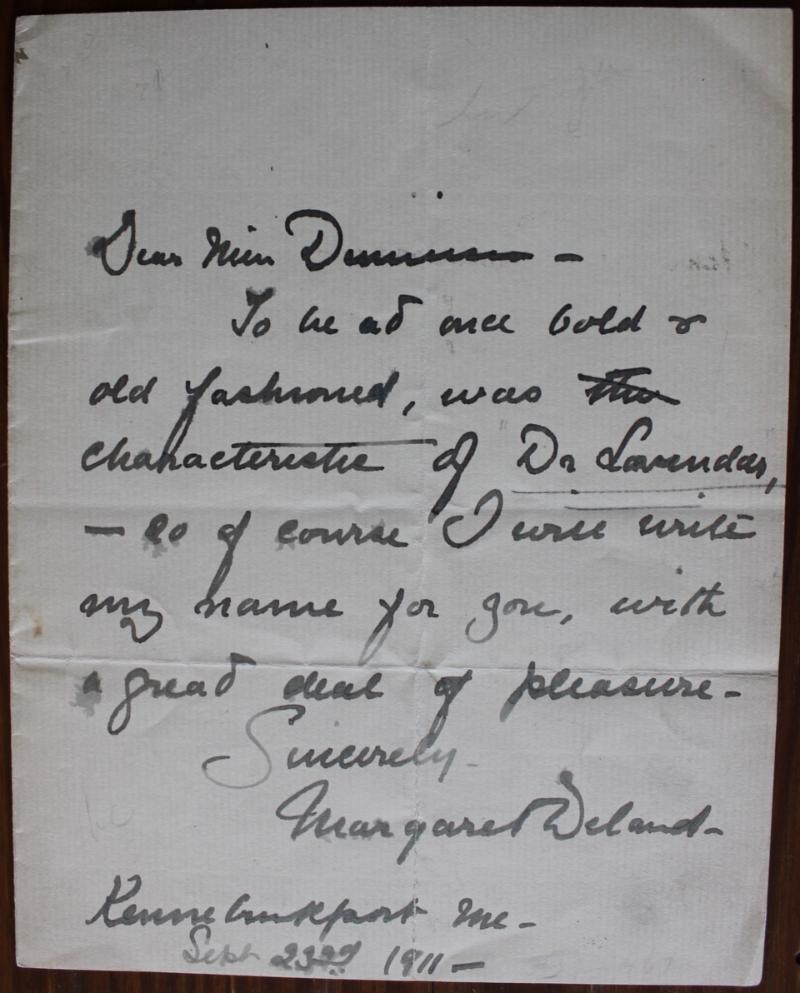 Dear Miss
To be at once bold &
old fashioned, was the
characteristic of Dr Lavendar,
— so of course I will write
my name for you, with
a great deal of pleasure -
Sincerely -
Margaret Deland -
Kennebunkport Me -
Sept 23rd 1911 —